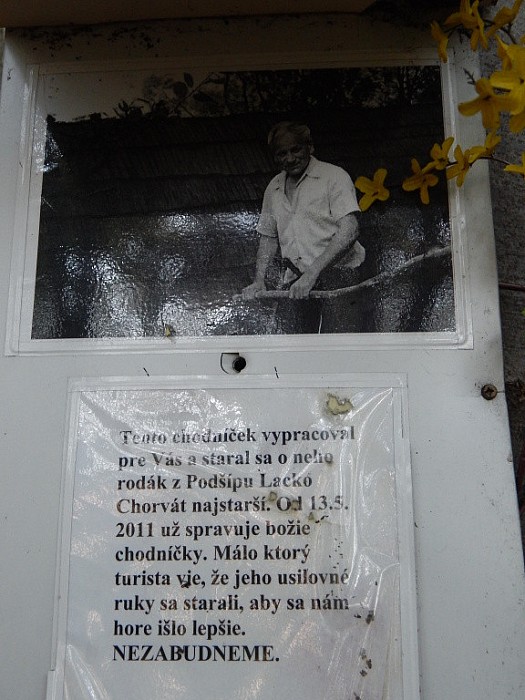 Tento chodníček vypracoval
pre Vás a staral sa o neho
rodák z Podšípu Lacko
Chorvát najstarší. Od 13.5.
2011 už spravuje božie
chodníčky. Málo ktorý
turista vie, že jeho usilovné
ruky sa starali, aby sa nám
hore išlo lepšie.
NEZABUDNEME.